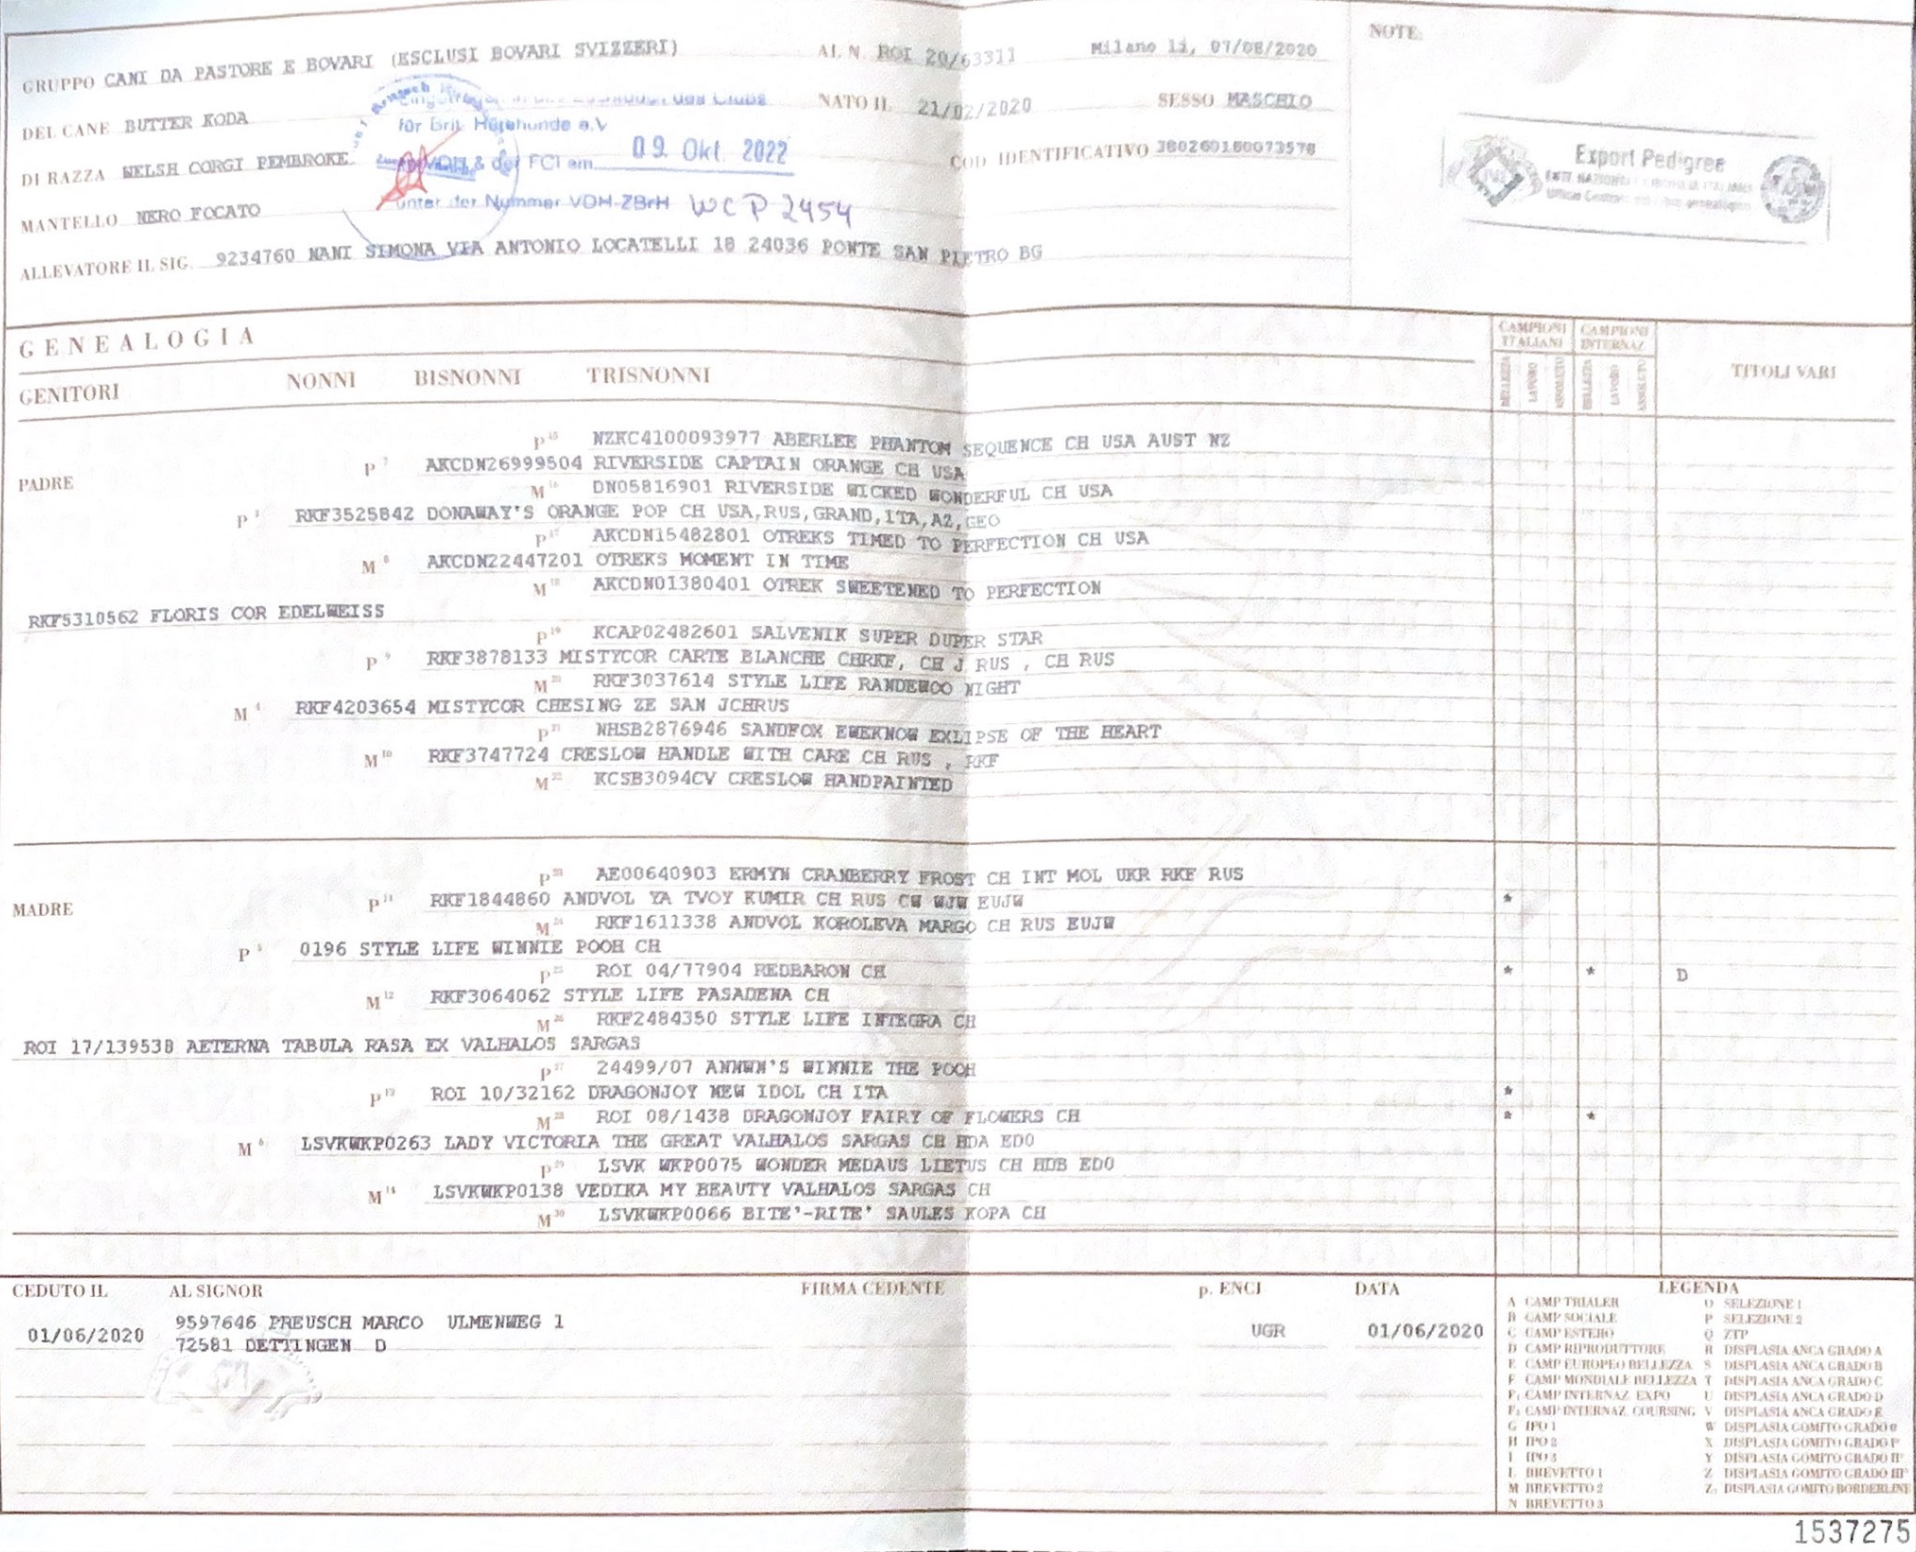 NOTE:
GRUPPO CANI DA PASTORE E BOVARI (ESCLUSI BOVARI SVIZZERI) AL N. ROI 20/63311 Milano li, 07/08/2020
DEL CANE BUTTER KODA NATO IL 21/02/2020 SESSO MASCHIO
des Clubs
für Brit. Hütehunde e.V
DI RAZZA WELSH CORGI PEMBROKE COD IDENTIFICATIVO 380260180073578
VDH & der FCI am 09. Okt. 2022
MANTELLO NERO FOCATO
unter der Nummer VDH-ZBrH WCP 2454
ALLEVATORE IL SIG. 9234760 NANI SIMONA VIA ANTONIO LOCATELLI 18 24036 PONTE SAN PIETRO BG
Export Pedigree
GENEALOGIA
CAMPIONI ITALIANI CAMPIONI INTERNAZ. TITOLI VARI
BELLEZZA LAVORO ASSOLUTO BELLEZZA LAVORO ASSOLUTO
GENITORI NONNI BISNONNI TRISNONNI
P 15 NZKC4100093977 ABERLEE PHANTOM SEQUENCE CH USA AUST NZ
P 7 AKCDN26999504 RIVERSIDE CAPTAIN ORANGE CH USA
PADRE
M 16 DN05816901 RIVERSIDE WICKED WONDERFUL CH USA
P 3 RKF3525842 DONAWAY'S ORANGE POP CH USA,RUS,GRAND,ITA,AZ,GEO
P 17 AKCDN15482801 OTREKS TIMED TO PERFECTION CH USA
M 8 AKCDN22447201 OTREKS MOMENT IN TIME
M 18 AKCDN01380401 OTREK SWEETENED TO PERFECTION
RKF5310562 FLORIS COR EDELWEISS
P 19 KCAP02482601 SALVENIK SUPER DUPER STAR
P 9 RKF3878133 MISTYCOR CARTE BLANCHE CHRKF, CH J RUS , CH RUS
M 20 RKF3037614 STYLE LIFE RANDEWOO NIGHT
M 4 RKF4203654 MISTYCOR CHESING ZE SAN JCHRUS
P 21 NHSB2876946 SANDFOX EWEKNOW EXLIPSE OF THE HEART
M 10 RKF3747724 CRESLOW HANDLE WITH CARE CH RUS , RKF
M 22 KCSB3094CV CRESLOW HANDPAINTED
P 23 AE00640903 ERMYN CRANBERRY FROST CH INT MOL UKR RKF RUS
MADRE
P 11 RKF1844860 ANDVOL YA TVOY KUMIR CH RUS CW WJW EUJW *
M 24 RKF1611338 ANDVOL KOROLEVA MARGO CH RUS EUJW
P 5 0196 STYLE LIFE WINNIE POOH CH
P 25 ROI 04/77904 REDBARON CH * * D
M 12 RKF3064062 STYLE LIFE PASADENA CH
M 26 RKF2484350 STYLE LIFE INTEGRA CH
ROI 17/139538 AETERNA TABULA RASA EX VALHALOS SARGAS
P 27 24499/07 ANNWN'S WINNIE THE POOH
P 13 ROI 10/32162 DRAGONJOY NEW IDOL CH ITA *
M 28 ROI 08/1438 DRAGONJOY FAIRY OF FLOWERS CH * *
M 6 LSVKWKP0263 LADY VICTORIA THE GREAT VALHALOS SARGAS CH HDA ED0
P 29 LSVK WKP0075 WONDER MEDAUS LIETUS CH HDB ED0
M 14 LSVKWKP0138 VEDIKA MY BEAUTY VALHALOS SARGAS CH
M 30 LSVKWKP0066 BITE'-RITE' SAULES KOPA CH
CEDUTO IL AL SIGNOR FIRMA CEDENTE p. ENCI DATA
01/06/2020 9597646 PREUSCH MARCO ULMENWEG 1
72581 DETTINGEN D UGR 01/06/2020
LEGENDA
A CAMP TRIALER O SELEZIONE 1
B CAMP SOCIALE P SELEZIONE 2
C CAMP ESTERO Q ZTP
D CAMP RIPRODUTTORE R DISPLASIA ANCA GRADO A
E CAMP EUROPEO BELLEZZA S DISPLASIA ANCA GRADO B
F CAMP MONDIALE BELLEZZA T DISPLASIA ANCA GRADO C
F1 CAMP INTERNAZ. EXPO U DISPLASIA ANCA GRADO D
F2 CAMP INTERNAZ. COURSING V DISPLASIA ANCA GRADO E
G IPO 1 W DISPLASIA GOMITO GRADO 0
H IPO 2 X DISPLASIA GOMITO GRADO I°
I IPO 3 Y DISPLASIA GOMITO GRADO II°
L BREVETTO 1 Z DISPLASIA GOMITO GRADO III°
M BREVETTO 2 Z1 DISPLASIA GOMITO BORDERLINE
N BREVETTO 3
1537275